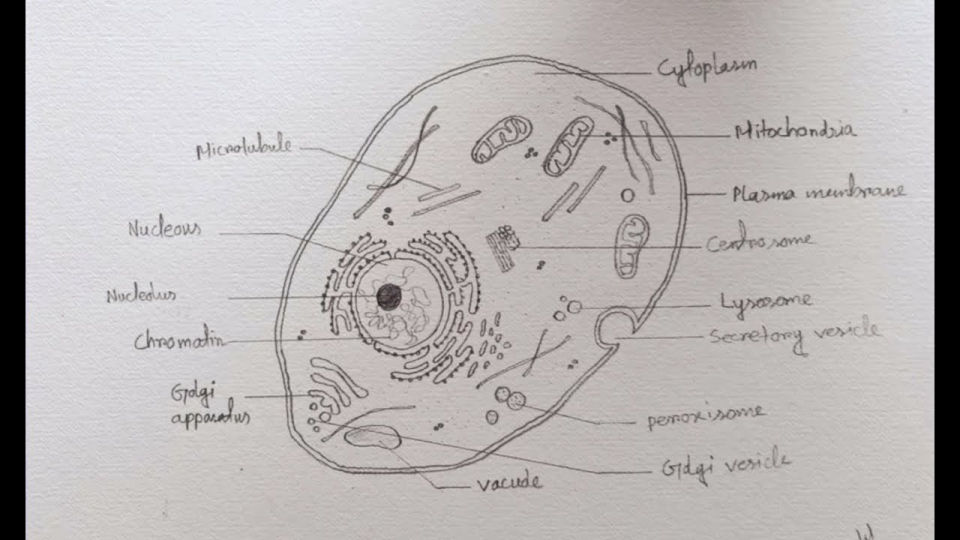 Cytoplasm
Mitochondria
Microtubule
Plasma membrane
Nucleous
Centrosome
Nucleolus
Lysosome
Secretory vesicle
Chromatin
Golgi
apparatus
peroxisome
Golgi vesicle
vacuole